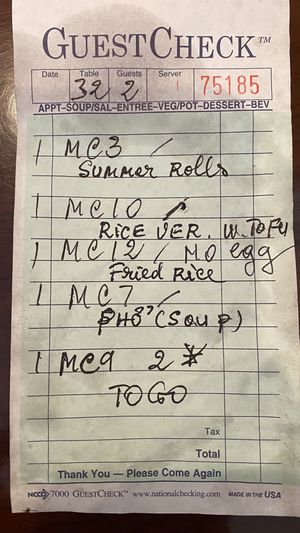 GUESTCHECK™
Date Table Guests Server
32 2 75185
APPT-SOUP/SAL-ENTREE-VEG/POT-DESSERT-BEV
1 MC3 /
SUMMER ROLLS
1 MC10 /
RICE VER. W. TOFU
1 MC12 / NO egg
Fried Rice
1 MC7 /
PHO (Soup)
1 MC9 2 *
TO GO
Tax
Total
Thank You — Please Come Again
NCCO 7000 GUESTCHECK™ www.nationalchecking.com MADE IN THE USA